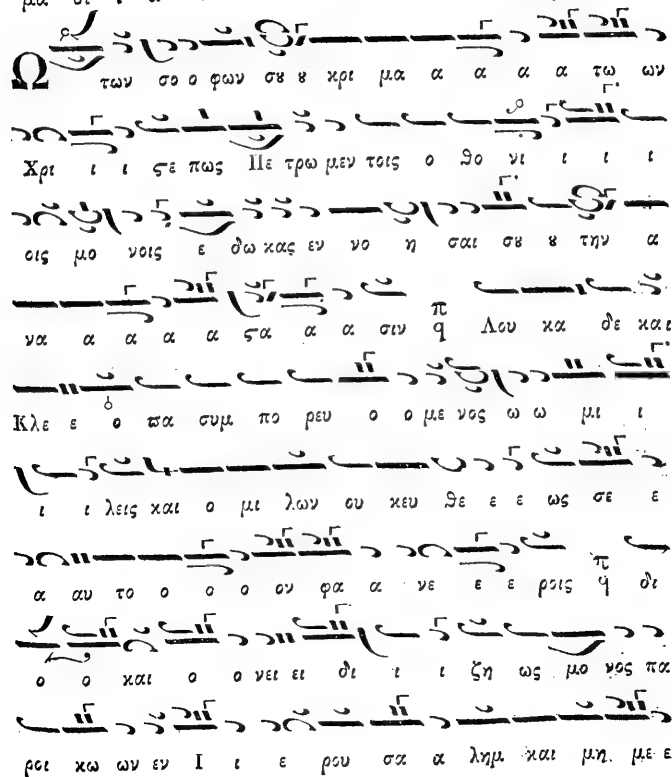 μα
Ω των σο ο φων σȣ ȣ κρι μα α α α α τω ων
Χρι ι ι ϛε πως Πε τρω μεν τοις ο θο νι ι ι ι
οις μο νοις ε δω κας εν νο η σαι σȣ ȣ την α
να α α α α ϛα α α σιν π q Λου κα δε και
Κλε ε ο πα συμ πο ρευ ο ο με νος ω ω μι ι
ι ι λεις και ο μι λων ου κευ θε ε ε ως σε ε
α αυ το ο ο ο ον φα α νε ε ε ροις π q δι
ο ο και ο ο νει ει δι ι ι ζη ως μο νος πα
ροι κω ων εν Ι ι ε ρου σα α λημ και μη με ε